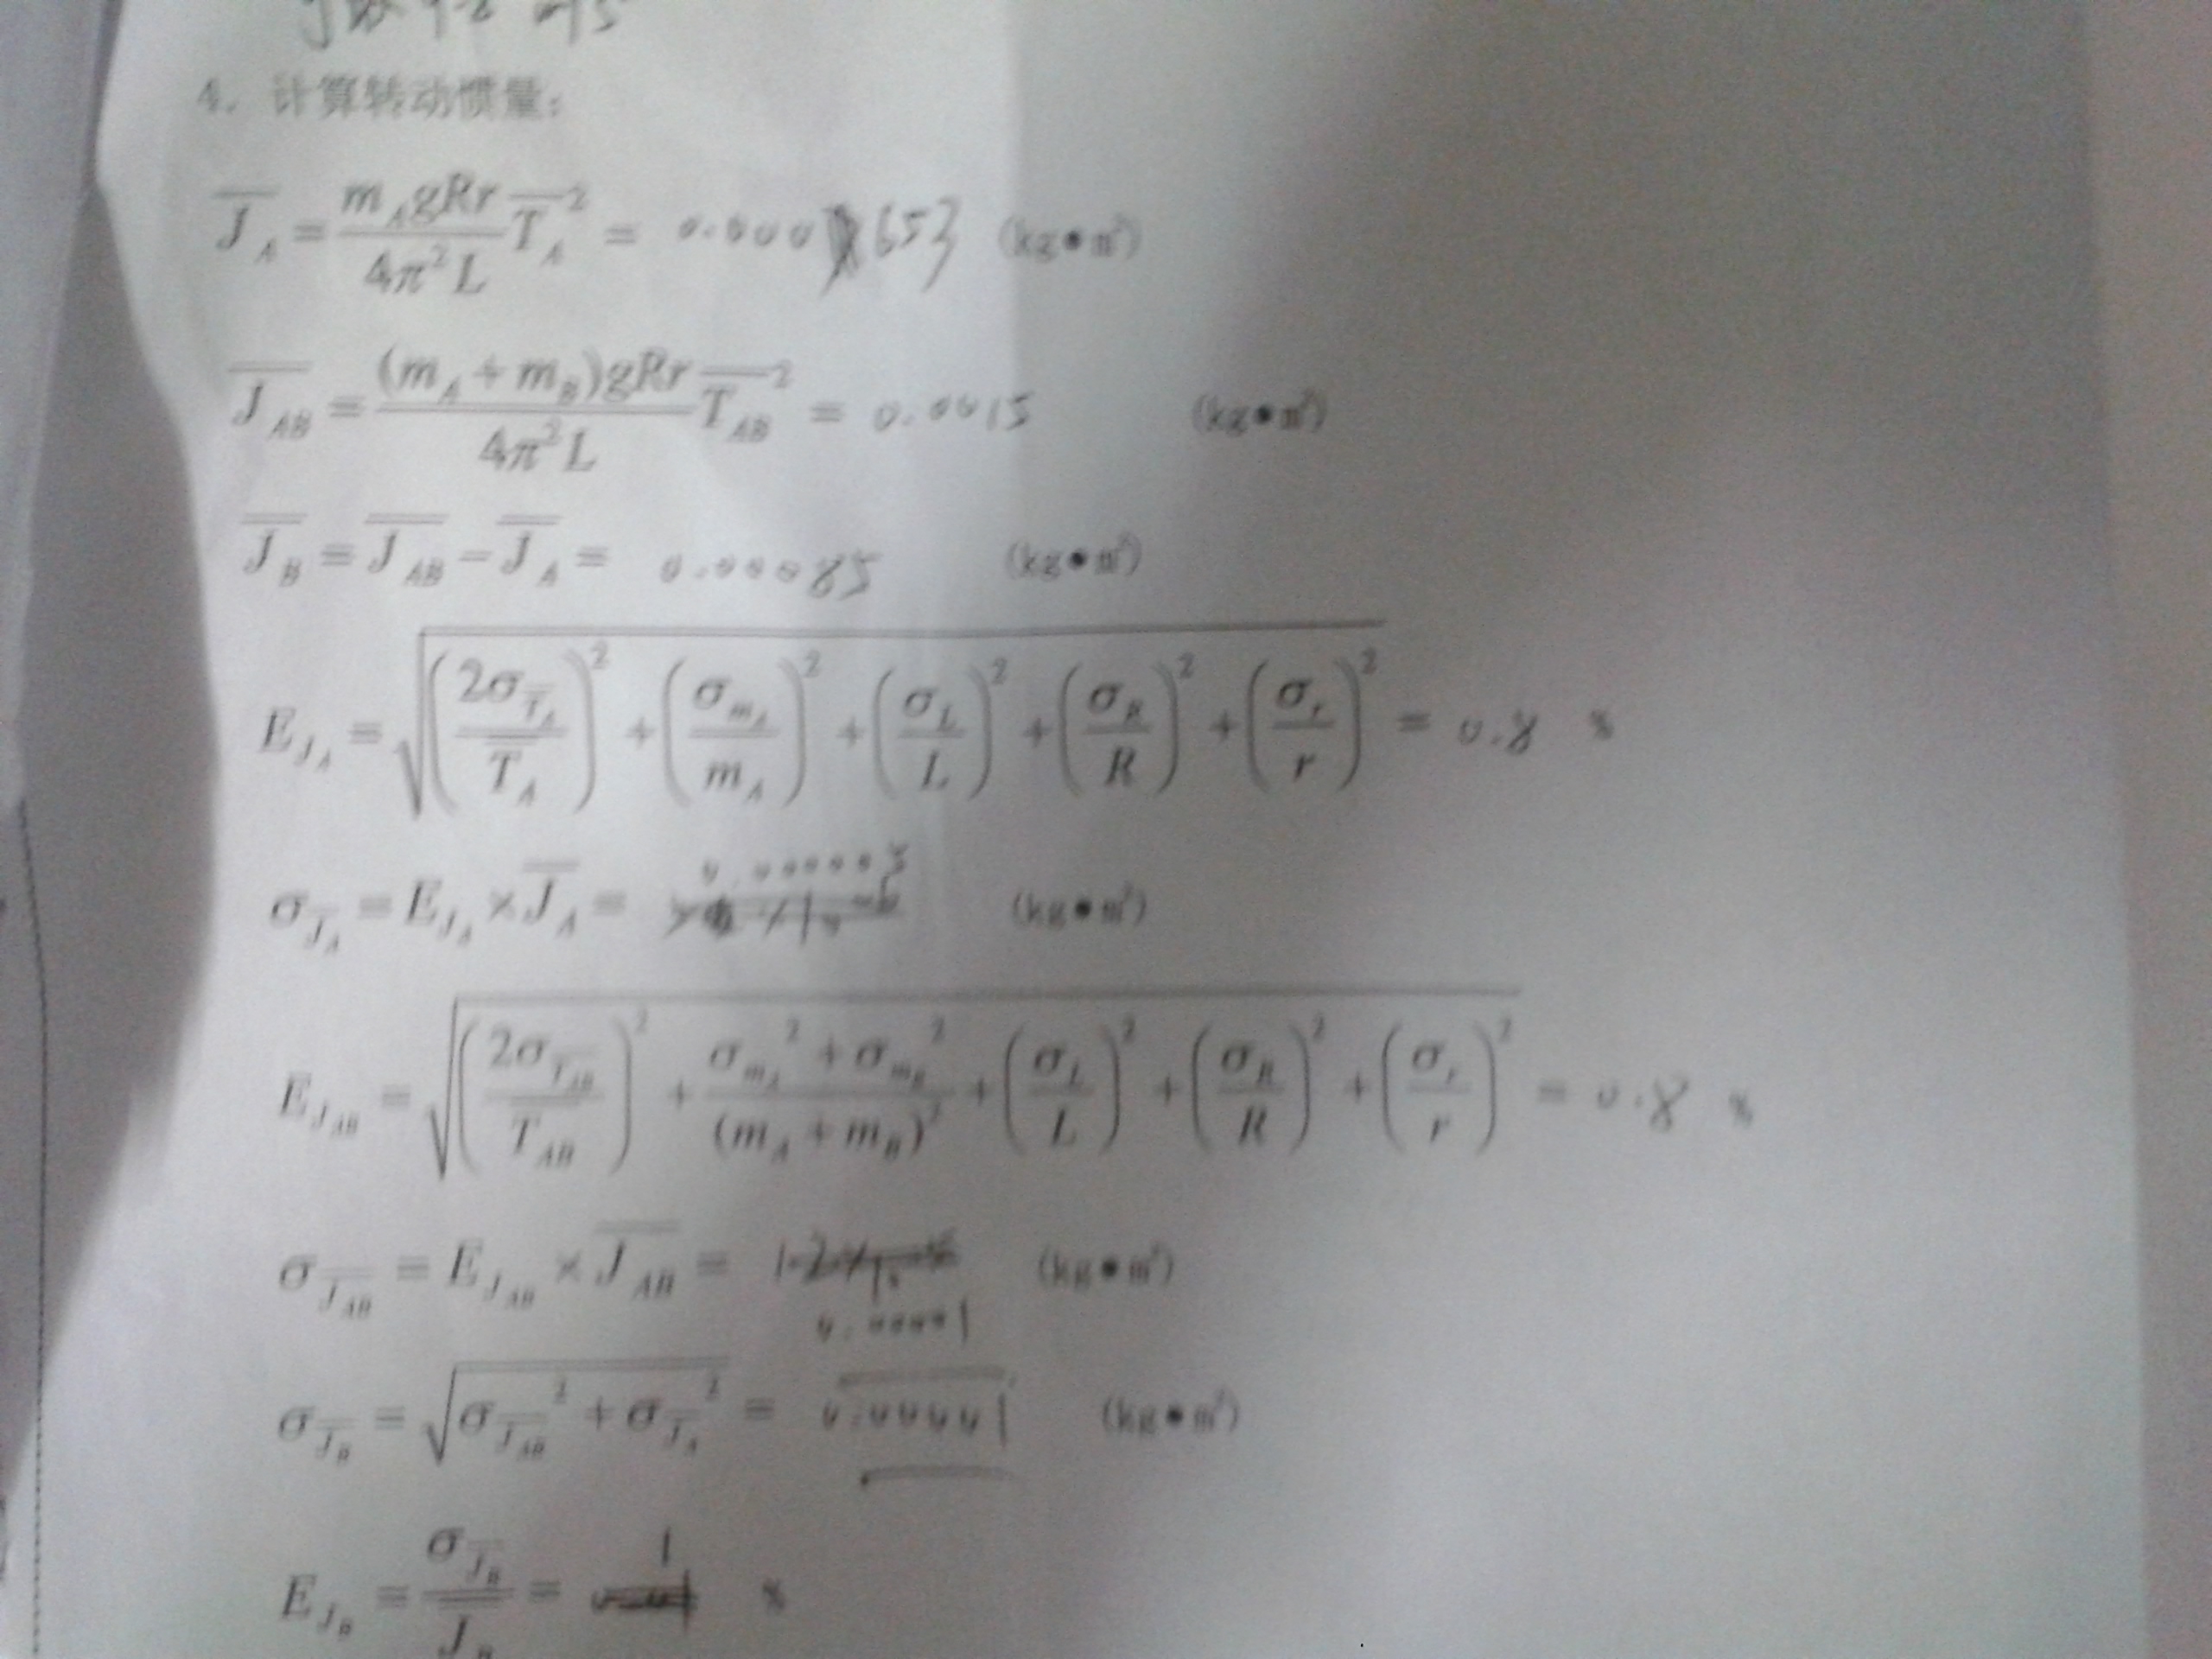 4. 计算转动惯量:
J̅_A = (m_A gRr / 4π²L) T̅_A² = 0.000653 (kg•m²)
J̅_AB = ((m_A + m_B)gRr / 4π²L) T̅_AB² = 0.0015 (kg•m²)
J̅_B = J̅_AB − J̅_A = 0.00085 (kg•m²)
E_J_A = √((2σ_T̅_A / T̅_A)² + (σ_m_A / m_A)² + (σ_L / L)² + (σ_R / R)² + (σ_r / r)²) = 0.8 %
σ_J̅_A = E_J_A × J̅_A = 0.000005 (kg•m²)
E_J_AB = √((2σ_T̅_AB / T̅_AB)² + (σ_m_A² + σ_m_B²) / (m_A + m_B)² + (σ_L / L)² + (σ_R / R)² + (σ_r / r)²) = 0.8 %
σ_J̅_AB = E_J_AB × J̅_AB = 0.00001 (kg•m²)
σ_J̅_B = √(σ_J̅_AB² + σ_J̅_A²) = 0.00001 (kg•m²)
E_J_B = σ_J̅_B / J̅_B = 1 %